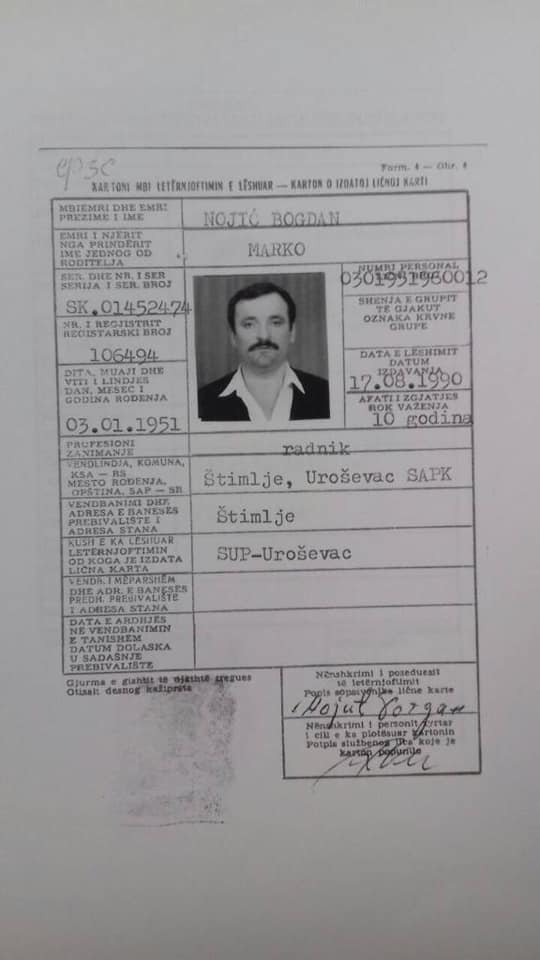 epsc
Form. 4 — Obr. 4
KARTONI MBI LETËRNJOFTIMIN E LËSHUAR — KARTON O IZDATOJ LIČNOJ KARTI
MBIEMRI DHE EMRI
PREZIME I IME
NOJIĆ BOGDAN
EMRI I NJËRIT
NGA PRINDËRIT
IME JEDNOG OD
RODITELJA
MARKO
SER. DHE NR. I SER
SERIJA I SER. BROJ
SK.01452474
NR. I REGJISTRIT
REGISTARSKI BROJ
106494
DITA, MUAJI DHE
VITI I LINDJES
DAN, MESEC I
GODINA ROĐENJA
03.01.1951
NUMRI PERSONAL
0301951960012
SHENJA E GRUPIT
TË GJAKUT
OZNAKA KRVNE
GRUPE
DATA E LËSHIMIT
DATUM
IZDAVANJA
17.08.1990
AFATI I ZGJATJES
ROK VAŽENJA
10 godina
PROFESIONI
ZANIMANJE
radnik
VENDLINDJA, KOMUNA,
KSA — RS
MESTO ROĐENJA,
OPŠTINA, SAP — SR
Štimlje, Uroševac SAPK
VENDBANIMI DHE
ADRESA E BANESËS
PREBIVALIŠTE I
ADRESA STANA
Štimlje
KUSH E KA LËSHUAR
LETËRNJOFTIMIN
OD KOGA JE IZDATA
LIČNA KARTA
SUP-Uroševac
VENDB. I MËPARSHËM
DHE ADR. E BANESËS
PREDH. PREBIVALIŠTE
I ADRESA STANA
DATA E ARDHJES
NË VENDBANIMIN
E TANISHËM
DATUM DOLASKA
U SADAŠNJE
PREBIVALIŠTE
Gjurma e gishtit të djathtë tregues
Otisak desnog kažiprsta
Nënshkrimi i poseduesit
të letërnjoftimit
Potpis sopstvenika lične karte
Nojić Bogdan
Nënshkrimi i personit zyrtar
i cili e ka plotësuar kartonin
Potpis službenog lica koje je
karton popunilo